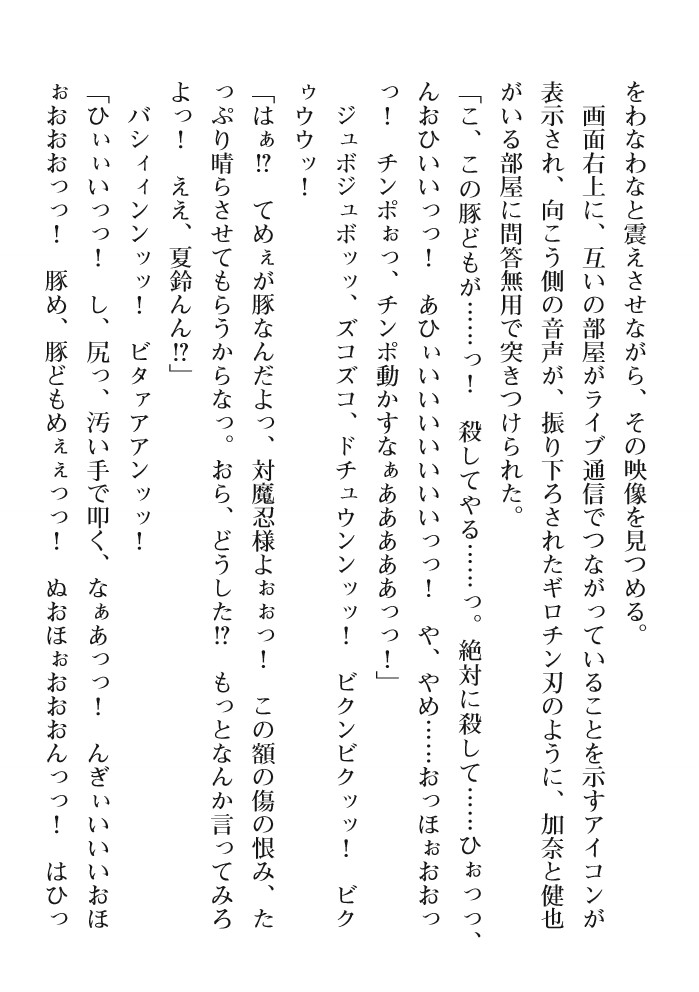 をわなわなと震えさせながら、その映像を見つめる。
　画面右上に、互いの部屋がライブ通信でつながっていることを示すアイコンが
表示され、向こう側の音声が、振り下ろされたギロチン刃のように、加奈と健也
がいる部屋に問答無用で突きつけられた。
「こ、この豚どもが……っ！　殺してやる……っ。絶対に殺して……ひぉっっ、
んおひいいっっ！　あひぃいいいいいいいっっ！　や、やめ……おっほぉおおっ
っ！　チンポぉっ、チンポ動かすなぁあああああっっ！」
　ジュボジュボッッ、ズコズコ、ドチュウンンッッ！　ビクンビクッッ！　ビク
ゥウウッ！
「はぁ!?　てめぇが豚なんだよっ、対魔忍様よぉぉっ！　この額の傷の恨み、た
っぷり晴らさせてもらうからなっ。おら、どうした!?　もっとなんか言ってみろ
よっ！　ええ、夏鈴んん!?」
　バシィィンンッッ！　ビタァアアンッッ！
「ひぃぃいっっ！　し、尻っ、汚い手で叩く、なぁあっっ！　んぎぃいいいおほ
ぉおおおっっ！　豚め、豚どもめぇぇっっ！　ぬおほぉおおおんっっ！　はひっ